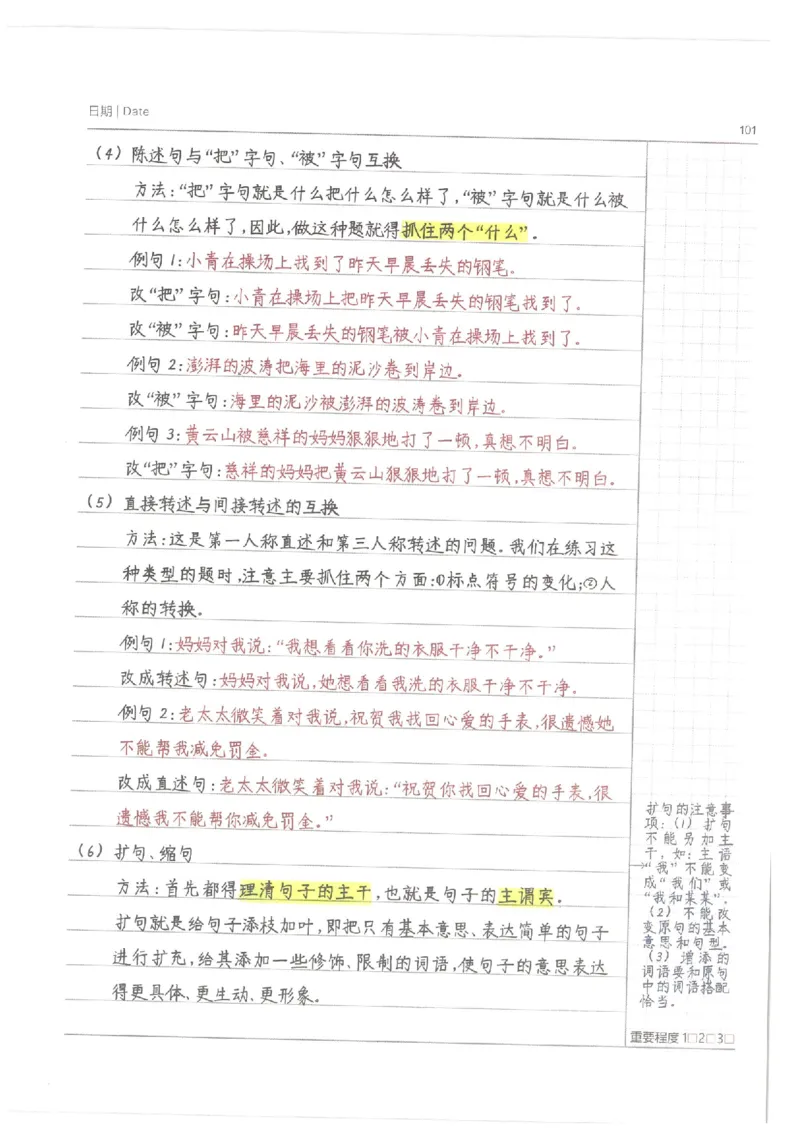 日期 | Date
101
(4) 陈述句与“把”字句、“被”字句互换
方法:“把”字句就是什么把什么怎么样了,“被”字句就是什么被
什么怎么样了,因此,做这种题就得抓住两个“什么”.
例句1:小青在操场上找到了昨天早晨丢失的钢笔。
改“把”字句:小青在操场上把昨天早晨丢失的钢笔找到了.
改“被”字句:昨天早晨丢失的钢笔被小青在操场上找到了.
例句2:澎湃的波涛把海里的泥沙卷到岸边.
改“被”字句:海里的泥沙被澎湃的波涛卷到岸边.
例句3:黄云山被慈祥的妈妈狠狠地打了一顿,真想不明白.
改“把”字句:慈祥的妈妈把黄云山狠狠地打了一顿,真想不明白.
(5) 直接转述与间接转述的互换
方法:这是第一人称直述和第三人称转述的问题.我们在练习这
种类型的题时,注意主要抓住两个方面:①标点符号的变化;②人
称的转换.
例句1:妈妈对我说:“我想看看你洗的衣服干净不干净.”
改成转述句:妈妈对我说,她想看看我洗的衣服干净不干净.
例句2:老太太微笑着对我说,祝贺我找回心爱的手表,很遗憾她
不能帮我减免罚金.
改成直述句:老太太微笑着对我说:“祝贺你找回心爱的手表,很
遗憾我不能帮你减免罚金.”
(6) 扩句、缩句
方法:首先都得理清句子的主干,也就是句子的主谓宾.
扩句就是给句子添枝加叶,即把只有基本意思、表达简单的句子
进行扩充,给其添加一些修饰、限制的词语,使句子的意思表达
得更具体、更生动、更形象.
扩句的注意事
项:(1) 扩句
不能另加主
干,如:主语
→“我”不能变
成“我们”或
“我和某某”.
(2) 不能改
变原句的基本
意思和句型.
(3) 增添的
词语要和原句
中的词语搭配
恰当.
重要程度 1□2□3□